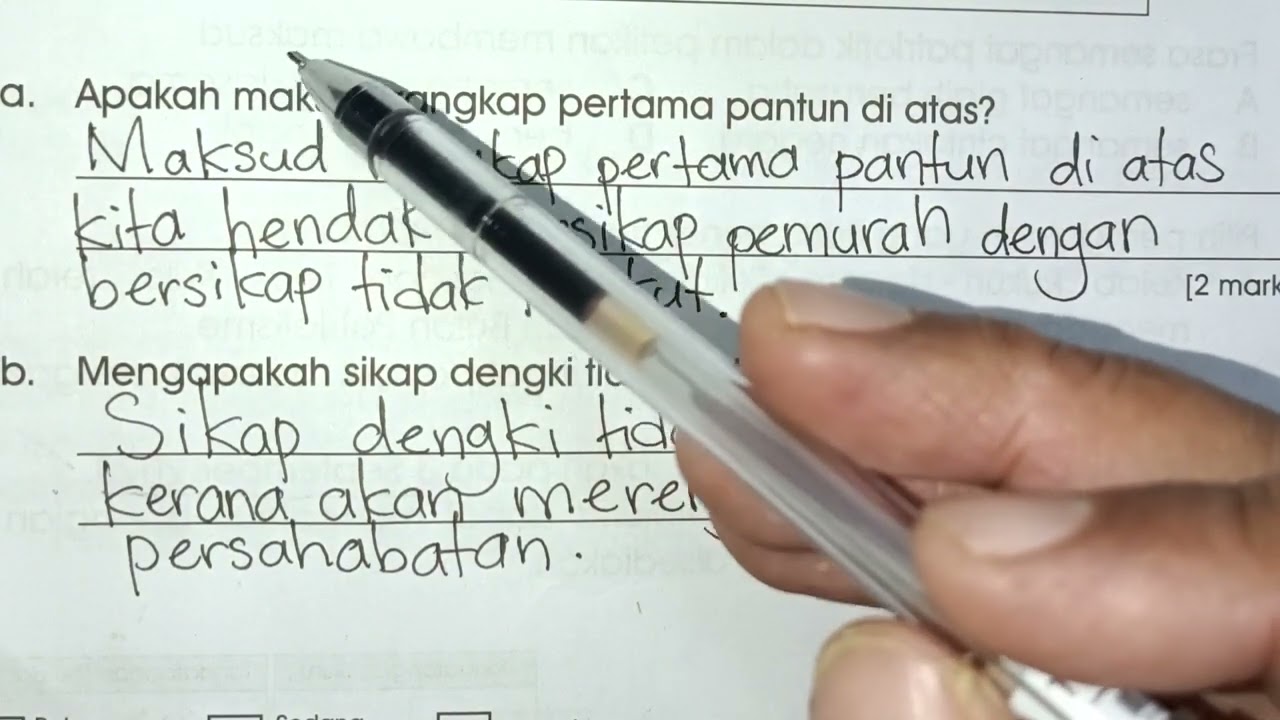 a. Apakah angkap pertama pantun di atas?
Maksud kap pertama pantun di atas
kita hendak sikap pemurah dengan
bersikap tidak
[2 mark
b. Mengapakah sikap dengki
Sikap dengki
kerana akan
persahabatan.